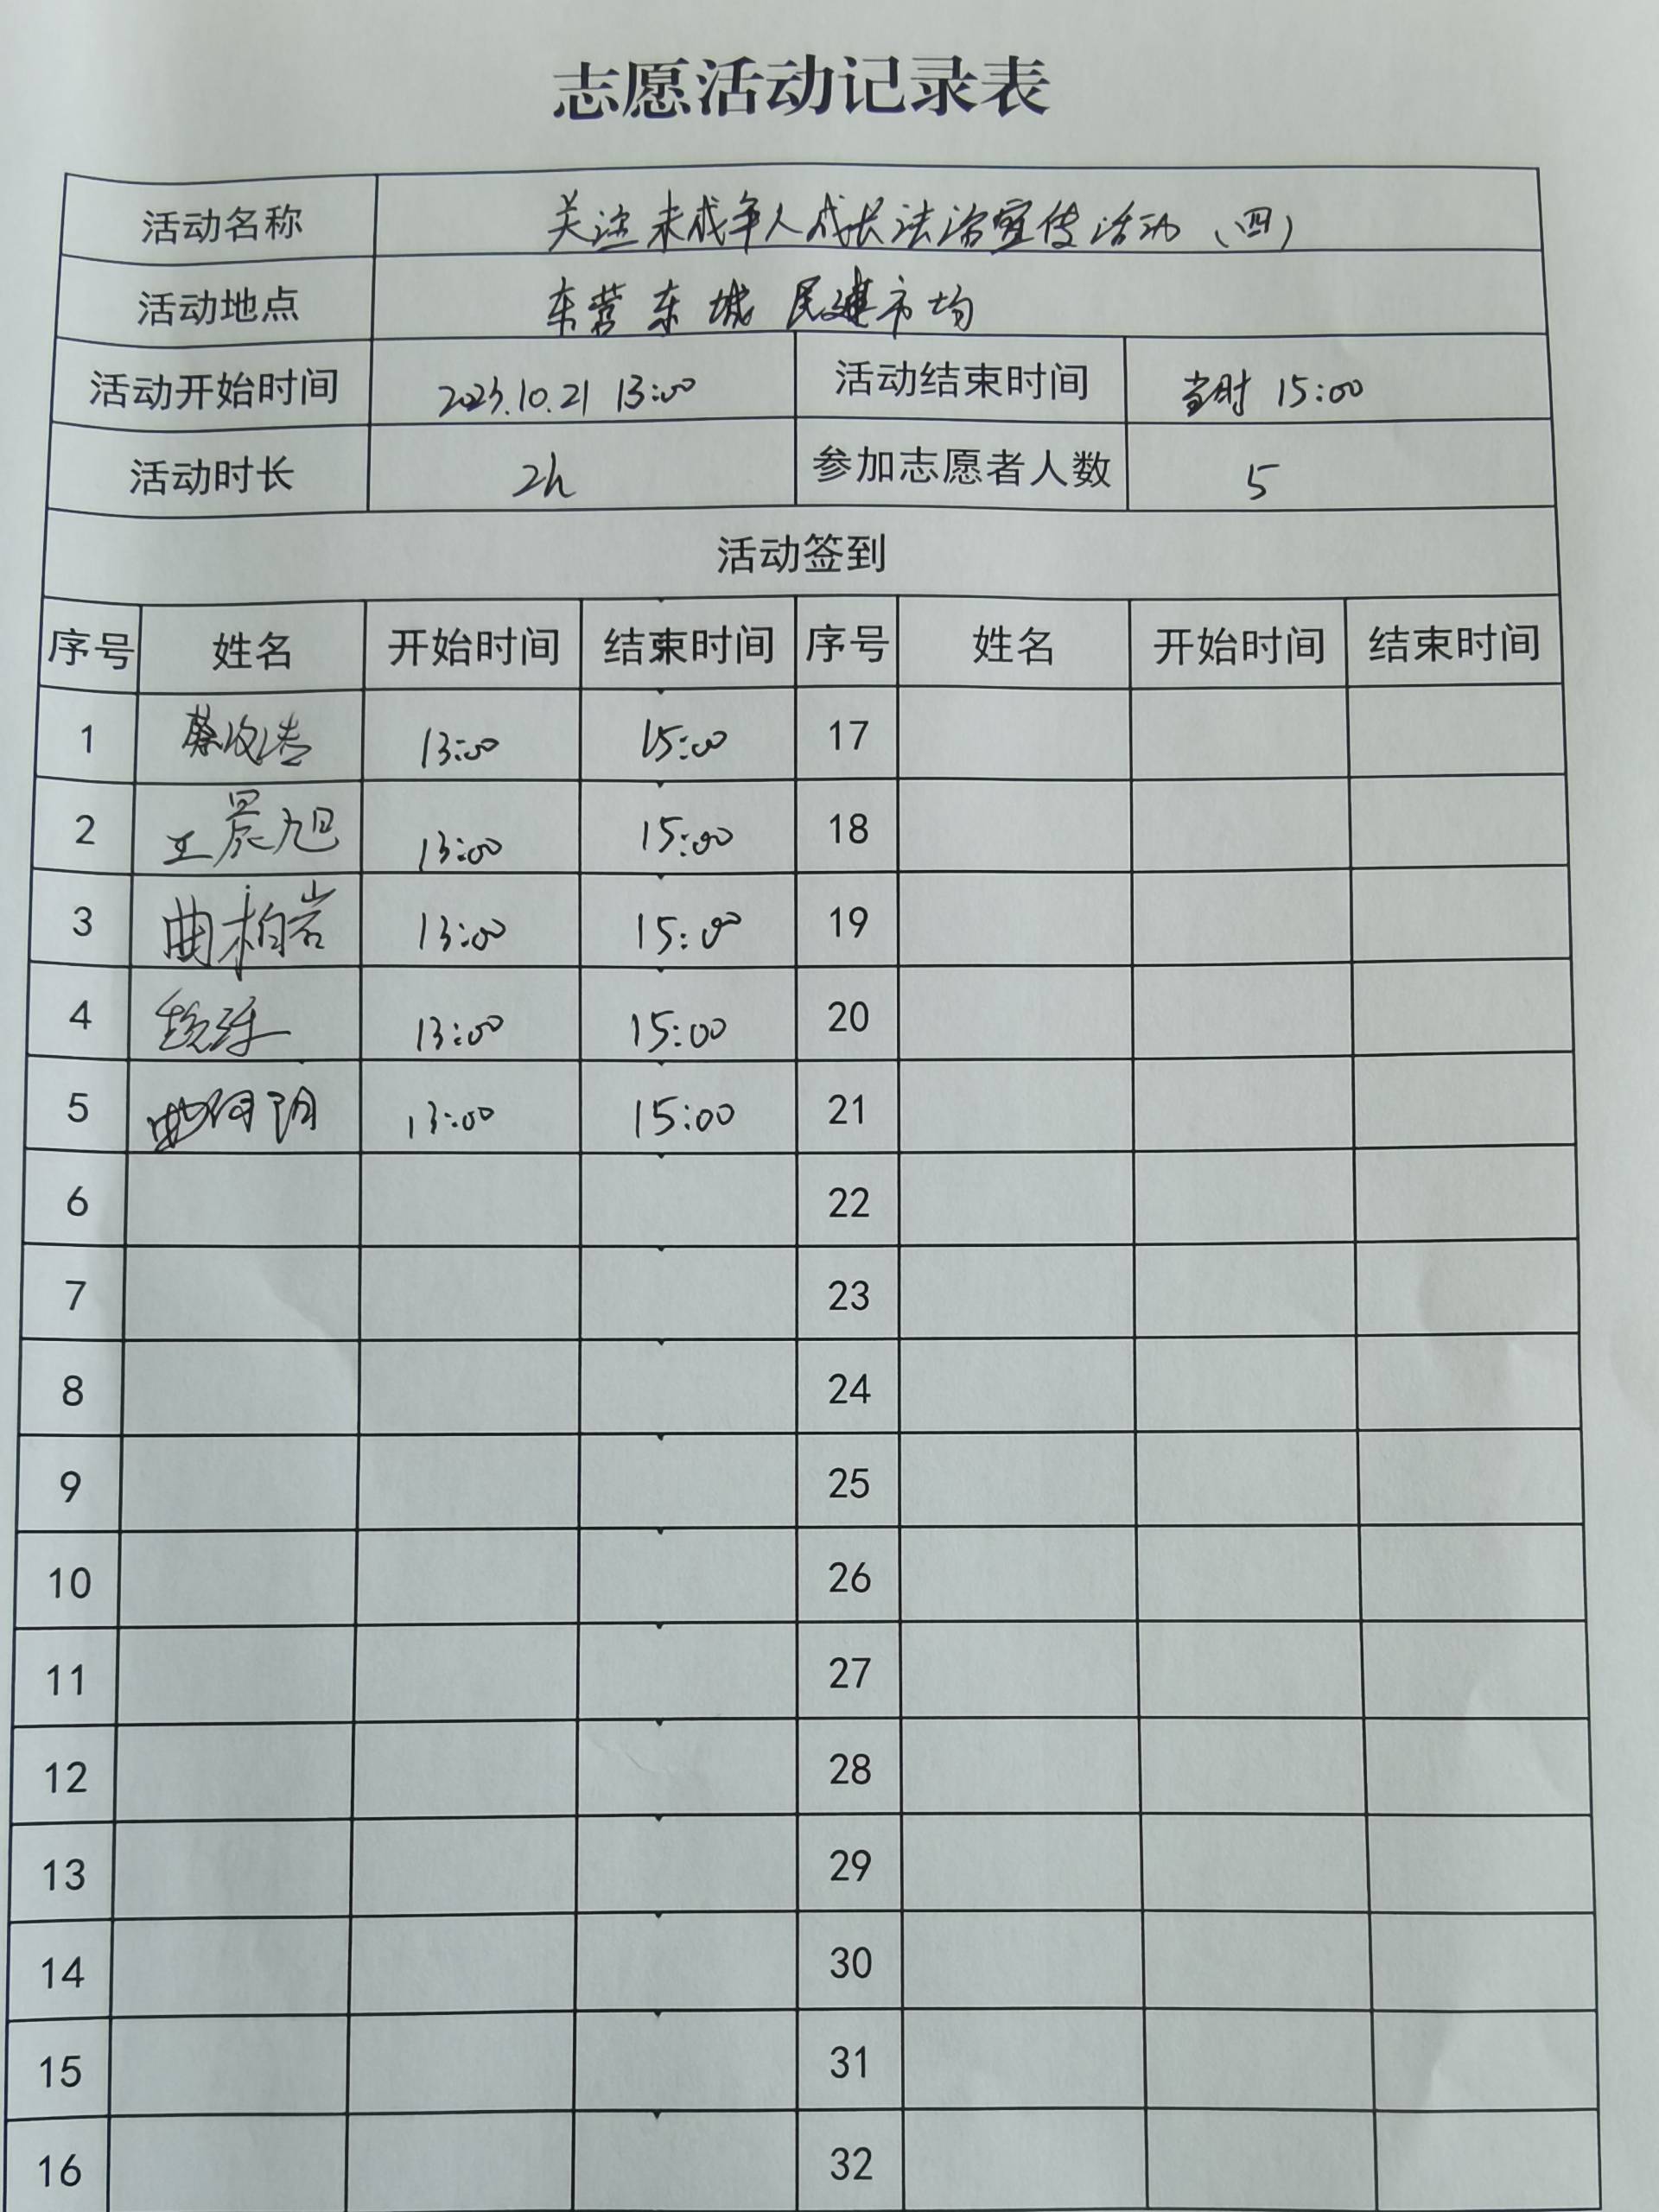 志愿活动记录表
活动名称 关注未成年人成长法治宣传活动(四)
活动地点 东营东城民建市场
活动开始时间 2023.10.21 13:00 活动结束时间 当时 15:00
活动时长 2h 参加志愿者人数 5
活动签到
序号 姓名 开始时间 结束时间 序号 姓名 开始时间 结束时间
1 13:00 15:00 17
2 王晨旭 13:00 15:00 18
3 曲柏岩 13:00 15:00 19
4 13:00 15:00 20
5 13:00 15:00 21
6 22
7 23
8 24
9 25
10 26
11 27
12 28
13 29
14 30
15 31
16 32